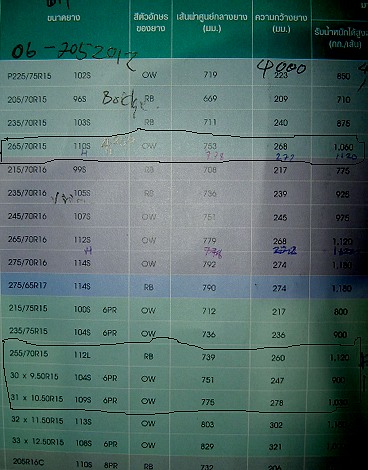 ขนาดยาง สีตัวอักษรของยาง เส้นผ่าศูนย์กลางยาง (มม.) ความกว้างยาง (มม.) รับน้ำหนักได้สูง (กก./เส้น)
06-2052012 4000
P225/75R15 102S OW 719 223 850
205/70R15 96S RB 669 209 710
235/70R15 103S RB 711 240 875
265/70R15 110S OW 753 268 1,060
H
215/70R16 99S RB 708 217 775
235/70R16 105S RB 736 239 925
245/70R16 107S OW 751 245 975
265/70R16 112S OW 779 268 1,120
H
275/70R16 114S OW 792 274 1,180
275/65R17 114S RB 790 274 1,180
215/75R15 100S 6PR OW 712 217 800
235/75R15 104S 6PR OW 736 236 900
255/70R15 112L RB 739 260 1,120
30 x 9.50R15 104S 6PR OW 751 247 900
31 x 10.50R15 109S 6PR OW 775 278
32 x 11.50R15 113S OW 803 302
33 x 12.50R15 108S 6PR OW 829 321
205R16C 110S 8PR RB 732 206